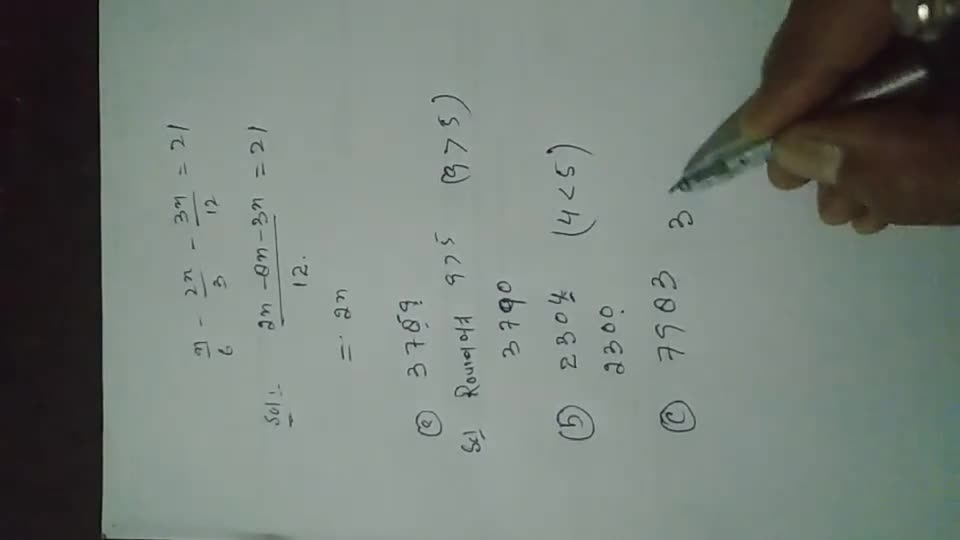 x/6 - 2x/3 - 3x/12 = 21
Sol:- 2x - 8x - 3x / 12. = 21
= 2x
(a) 3789
Sol Round off 9>5 (9>5)
3790
(b) 2304 (4<5)
2300
(c) 7583 3